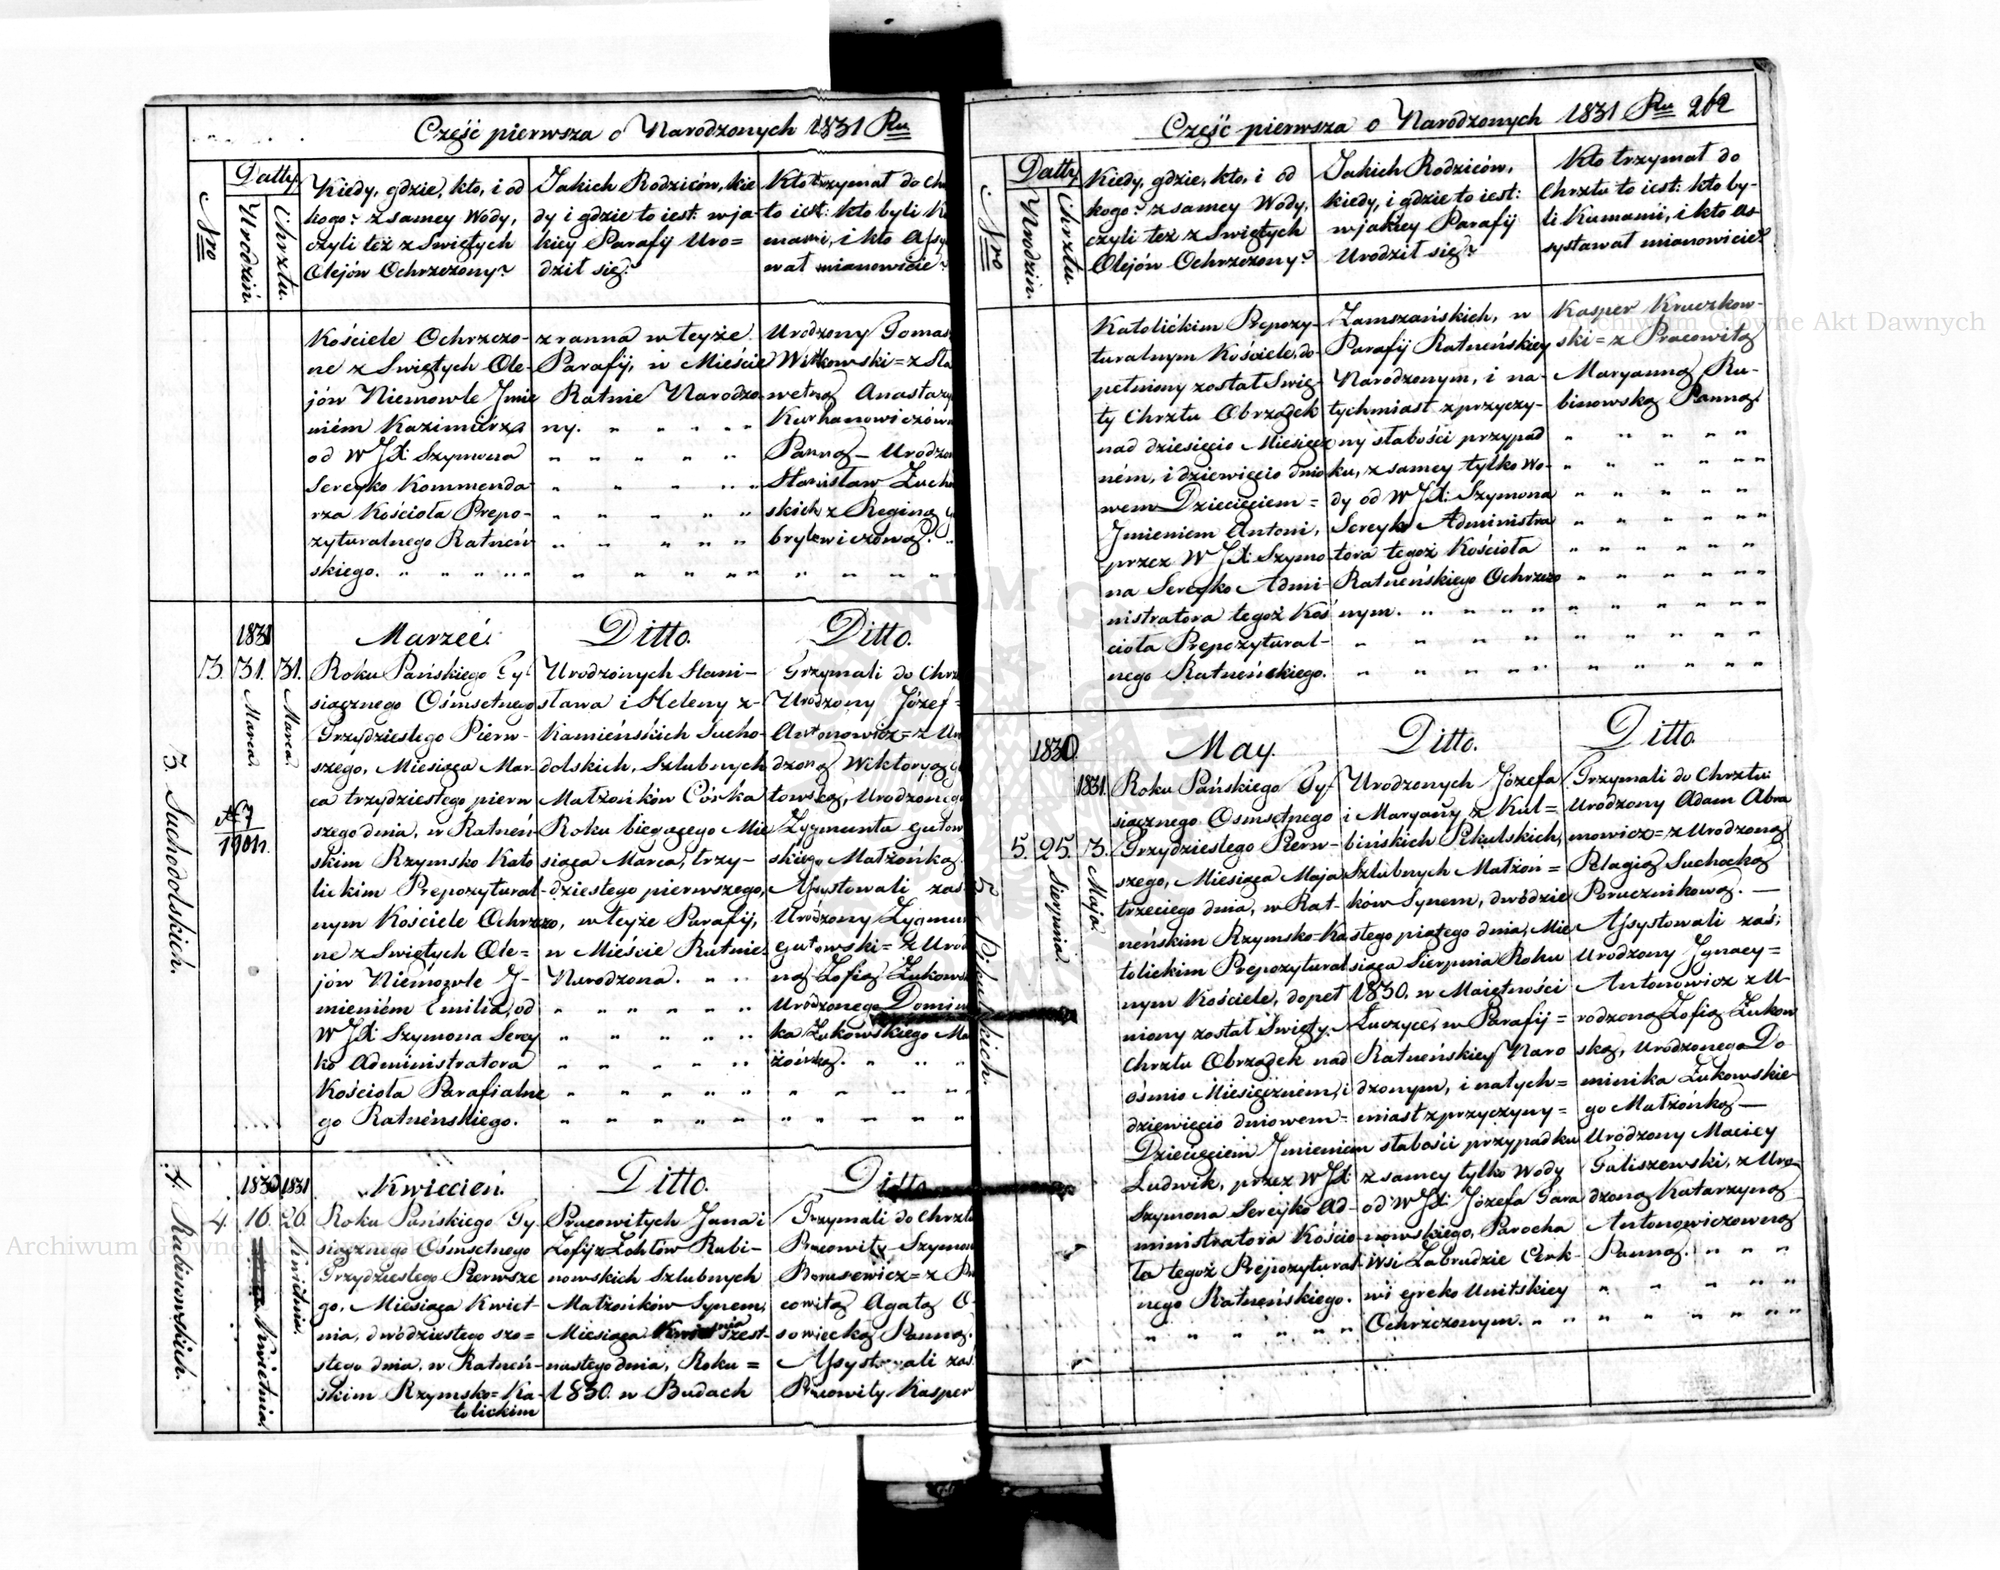 Część pierwsza o Narodzonych 1831 Ru
Nro
Datty
Urodzin.
Chrztu.
Kiedy, gdzie, kto, i od
kogo? z samey Wody,
czyli też z Swiętych
Olejów Ochrzczony?
Jakich Rodziców, kie
dy i gdzie to iest: w ja-
kiey Parafij Uro=
dził się?
Kto trzymał do Ch
to iest: kto byli K
mami, i kto Assy
wał mianowicie?
Kościele Ochrzczo-
ne z Swiętych Ole-
jów Niemowle Jmie
niem Kazimierza
od W JX: Szymona
Sereyko Kommenda-
rza Kościoła Prepo-
zyturalnego Ratneń
skiego.
z ranna w teyże
Parafij, w Mieście
Ratnie Narodzo-
ny.
Urodzony Tomas
Witkowski = z Sta
wetną Anastazy
Kurhanowiczów
Panną - Urodzo
Stanisław Zuch
skich z Reginą
brylewiczową.
3. Suchodolskich.
3.
1831
31.
Marca
31.
Marca.
№ 7
1901r.
Marzec.
Roku Pańskiego Ty-
siącznego Ośmsetnego
Trzydziestego Pierw-
szego, Miesiąca Mar-
ca trzydziestego pierw
szego dnia, w Ratneń
skim Rzymsko Kato
lickim Prepozytural-
nym Kościele Ochrzczo,
ne z Swiętych Ole=
jów Niemowle J-
mieniem Emilia, od
W JX Szymona Serey
ko Administratora
Kościoła Parafialne
go Ratneńskiego.
Ditto.
Urodzonych Stani-
sława i Heleny z-
Kamieńskich Sucho-
dolskich, Szlubnych
Małżonków Córka
Roku biegącego Mie
siąca Marca, trzy-
dziestego pierwszego,
w teyże Parafij,
w Mieście Ratnie-
Narodzona.
Ditto.
Trzymali do Chrz
Urodzony Józef=
Antonowicz = z U
dzoną Wiktoryą
towską, Urodzonego
Zygmunta Gutow
skiego Małżonką.
Assystowali zaś
Urodzony Zygmu
Gutowski = z Urod
ną Zofią Zukow
Urodzonego Domin
ka Zukowskiego Ma
żonką.
4. Rubinowskich.
4
1830
16.
Kwietnia
1831
26.
Kwietnia.
Kwiecień.
Roku Pańskiego Ty
siącznego Ośmsetnego
Trzydziestego Pierwsze
go, Miesiąca Kwiet-
nia, dwódziestego szo=
stego dnia, w Ratneń-
skim Rzymsko=Ka-
tolickim
Ditto.
Pracowitych Jana i
Zofij z Zohtów Rubi-
nowskich Szlubnych
Małżonków Synem,
Miesiąca Kwietnia Szest-
nastego dnia, Roku =
1830. w Budach
Ditto
Trzymali do Chrztu
Pracowity Szymon
Borusewicz = z P
cowitą Agatą O-
sowiecką Panną.
Assystowali zaś
Pracowity Kasper
Część pierwsza o Narodzonych 1831 Ru 262
Nro
Datty
Urodzin.
Chrztu.
Kiedy, gdzie, kto, i od
kogo? z samey Wody,
czyli też z Swiętych
Olejów Ochrzczony?
Jakich Rodziców,
kiedy, i gdzie to iest:
w jakiey Parafij
Urodził się?
Kto trzymał do
Chrztu to iest: kto by-
li Kumami, i kto As-
systował mianowicie?
Katolickim Prepozy-
turalnym Kościele, do-
pełniony został Swię-
ty Chrztu Obrządek
nad dziesięcio Miesięcz
ném, i dziewięcio dnio
wem Dziecięciem =
Jmieniem Antoni,
przez W JX: Szymo-
na Sereyko Admi-
nistratora tegoż Koś
cioła Prepozytural-
nego Ratneńskiego.
Zamszańskich, w
Parafij Ratneńskiey
Narodzonym, i na-
tychmiast z przyczy-
ny słabości przypad
ku, z samey tylko Wo-
dy od W JX: Szymona
Sereyko Administra
tora tegoż Kościoła
Ratneńskiego Ochrzczo
nym.
Kasper Kruczkow-
ski = z Pracowitą
Maryanną Ru-
binowską Panną.
5. Pikulskich.
5.
1830.
25.
Sierpnia
1831.
3.
Maja.
May.
Roku Pańskiego Ty-
siącznego Osmsetnego
Trzydziestego Pierw-
szego, Miesiąca Maja
trzeciego dnia, w Rat-
neńskim Rzymsko-Ka
tolickim Prepozytural
nym Kościele, dopeł
niony został Swięty
Chrztu Obrządek nad
ośmio Miesięczném, i
dziewięcio dniowem=
Dziecięciem Jmieniem
Ludwik, przez W JX
Szymona Sereyko Ad-
ministratora Kościo
ła tegoż Prepozytural
nego Ratneńskiego.
Ditto.
Urodzonych Józefa
i Maryany z Kul=
bińskich Pikulskich,
Szlubnych Małżon=
ków Synem, dwódzie
stego piątego dnia, Mie
siąca Sierpnia Roku
1830. w Maiętności
Łuczyce, w Parafij=
Ratneńskiey Naro
dzonym, i natych=
miast z przyczyny=
słabości przypadku
z samey tylko Wody
od W JX: Józefa Tara
nowskiego, Parocha
Wsi Zabrudzie Cerk-
wi Greko Unitskiey
Ochrzczonym.
Ditto.
Trzymali do Chrztu:
Urodzony Adam Abra
mowicz = z Urodzoną
Pelagią Suchocką
Porucznikową. —
Assystowali zaś:
Urodzony Jgnacy=
Antonowicz z U-
rodzoną Zofią Zukow
ską, Urodzonego Do-
minika Zukowskie-
go Małżonką —
Urodzony Maciey
Galiszewski, z Uro-
dzoną Katarzyną
Antonowiczowną
Panną.
Archiwum Główne Akt Dawnych
Archiwum Główne Akt Dawnych